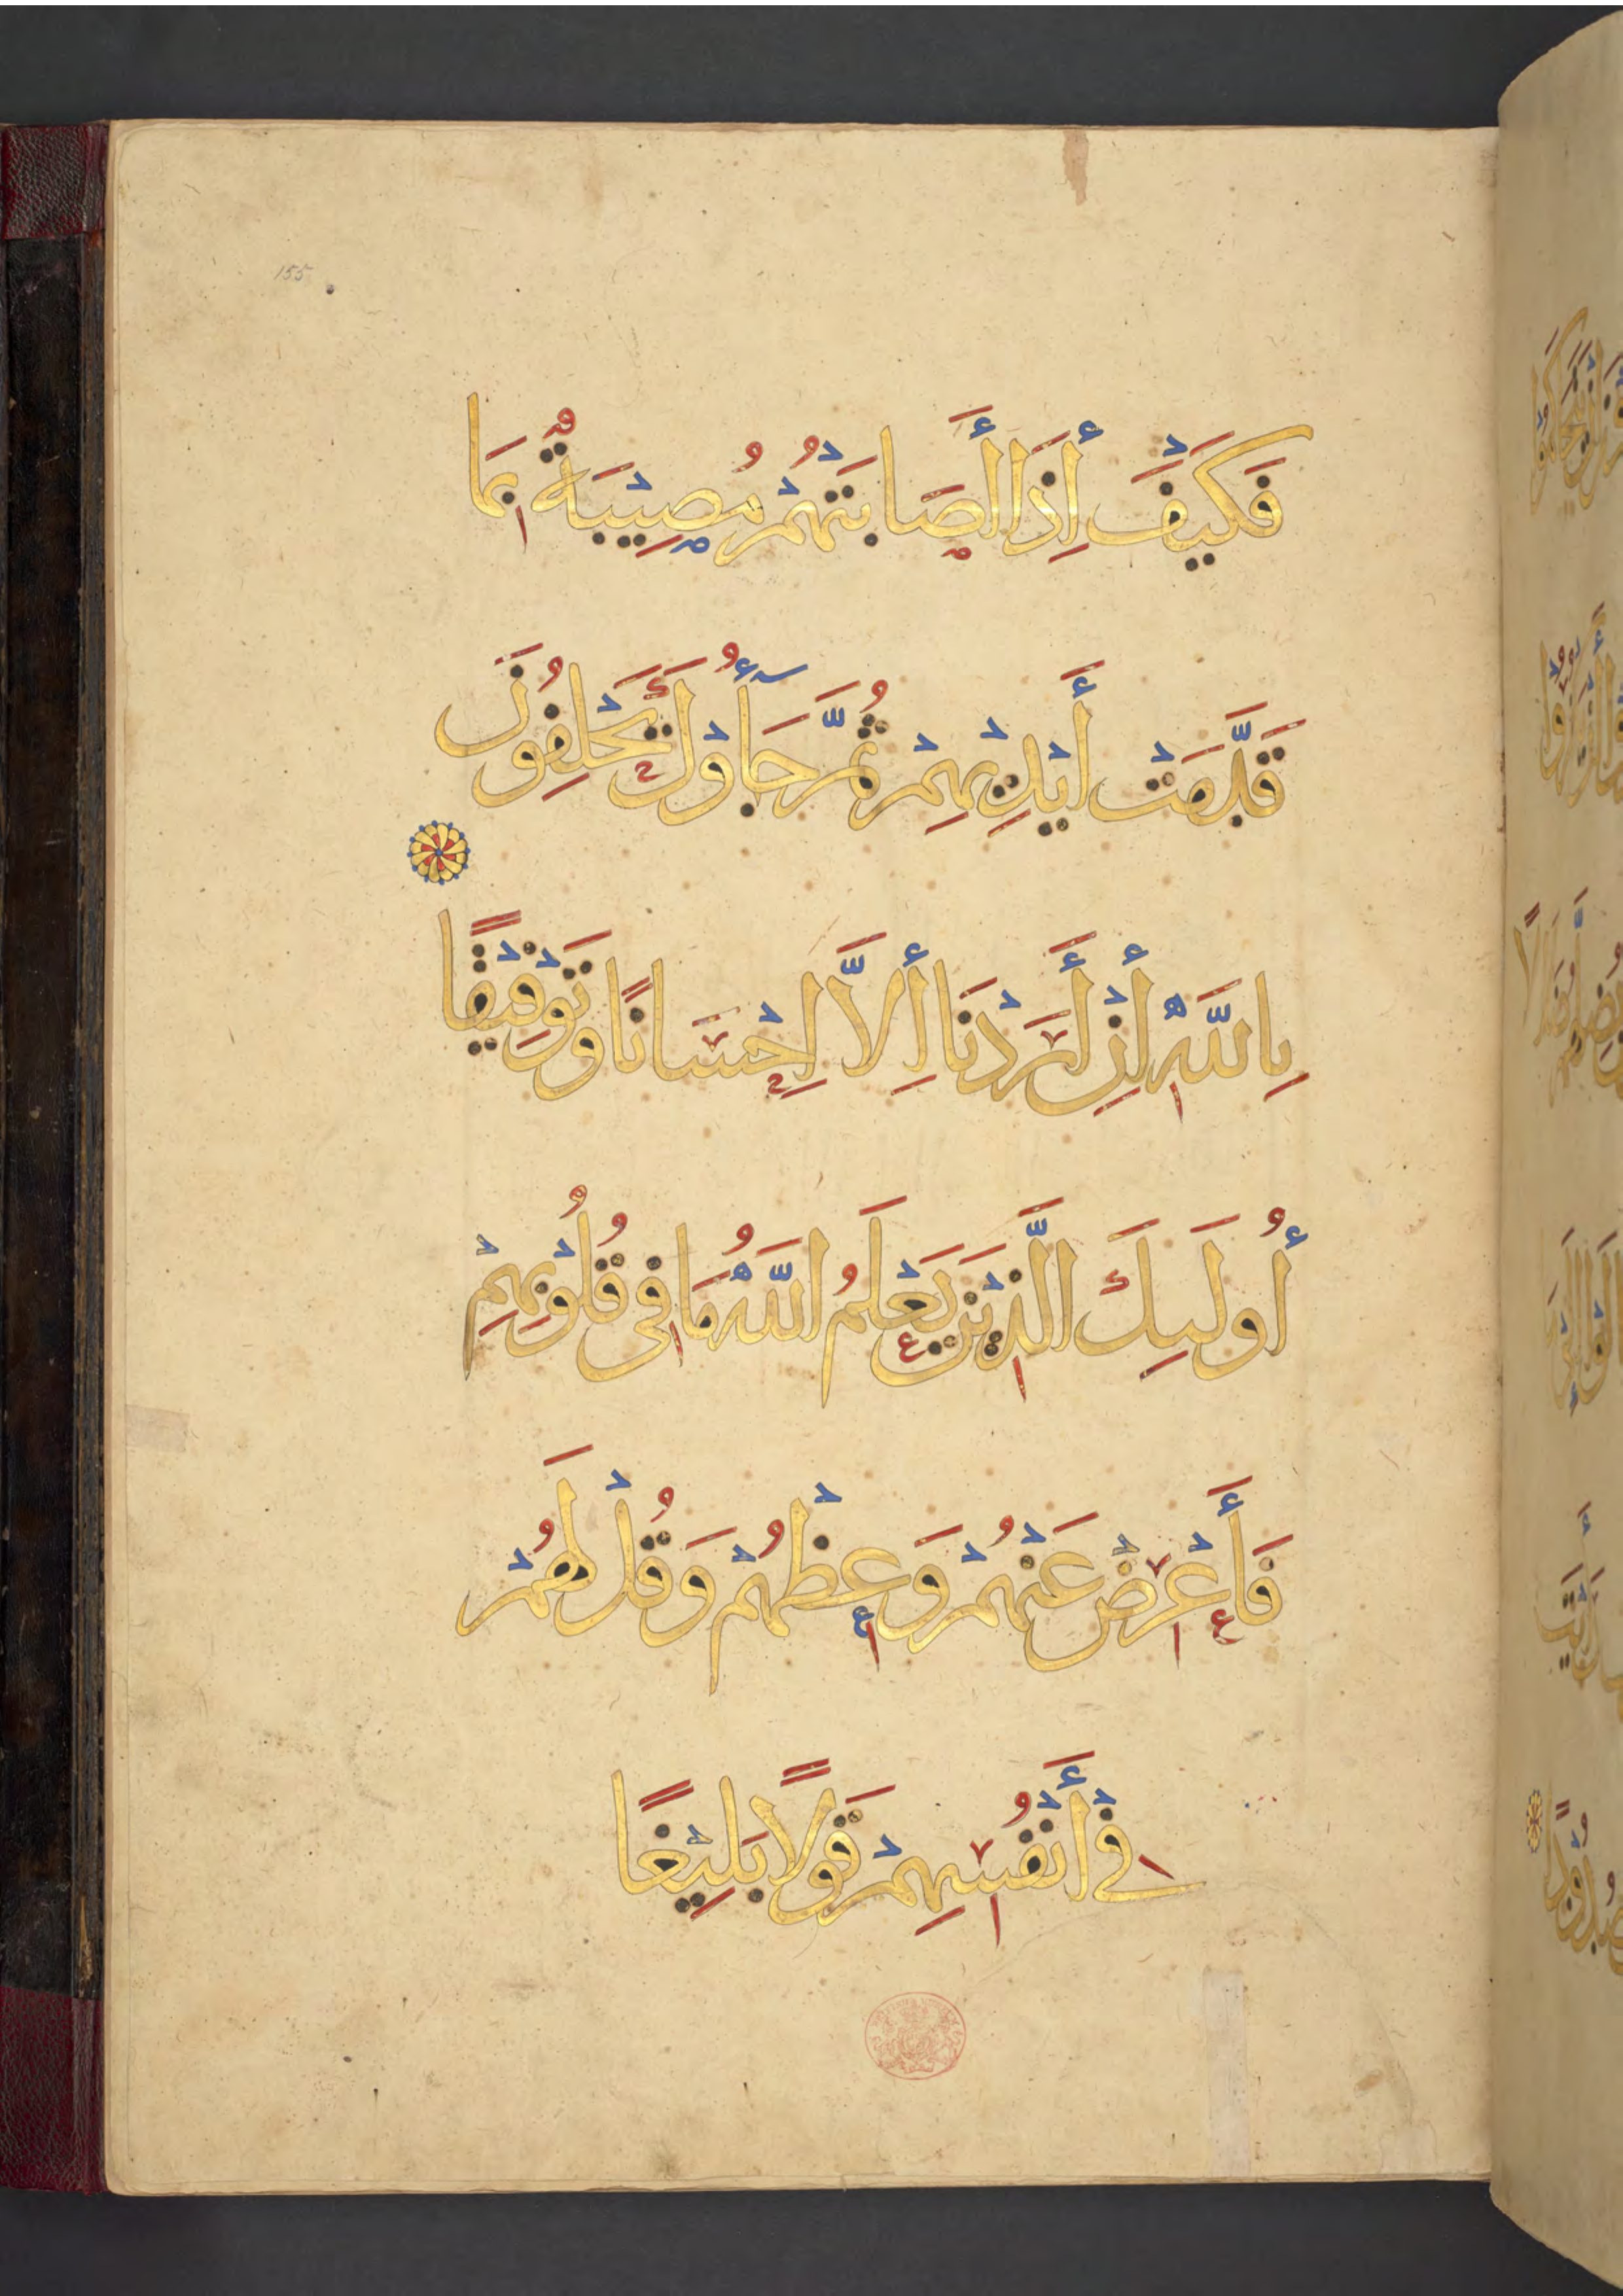 155
فَكَيْفَ أِذَا أَصَابَتْهُمْ مُصِيْبَةٌ بِمَا
قَدَّمَتْ أَيْدِيْهِمْ ثُمَّ جَآؤُوْكَ يَحْلِفُوْنَ
بِاللَّهِ أِنْ أَرَدْنَا أِلَّا اِحْسَانًا وَتَوْفِيْقًا
أُولَئِكَ الَّذِيْنَ يَعْلَمُ اللَّهُ مَا فِى قُلُوْبِهِمْ
فَأَعْرِضْ عَنْهُمْ وَعِظْهُمْ وَقُلْ لَهُمْ
فِيْ أَنْفُسِهِمْ قَوْلًا بَلِيْغًا